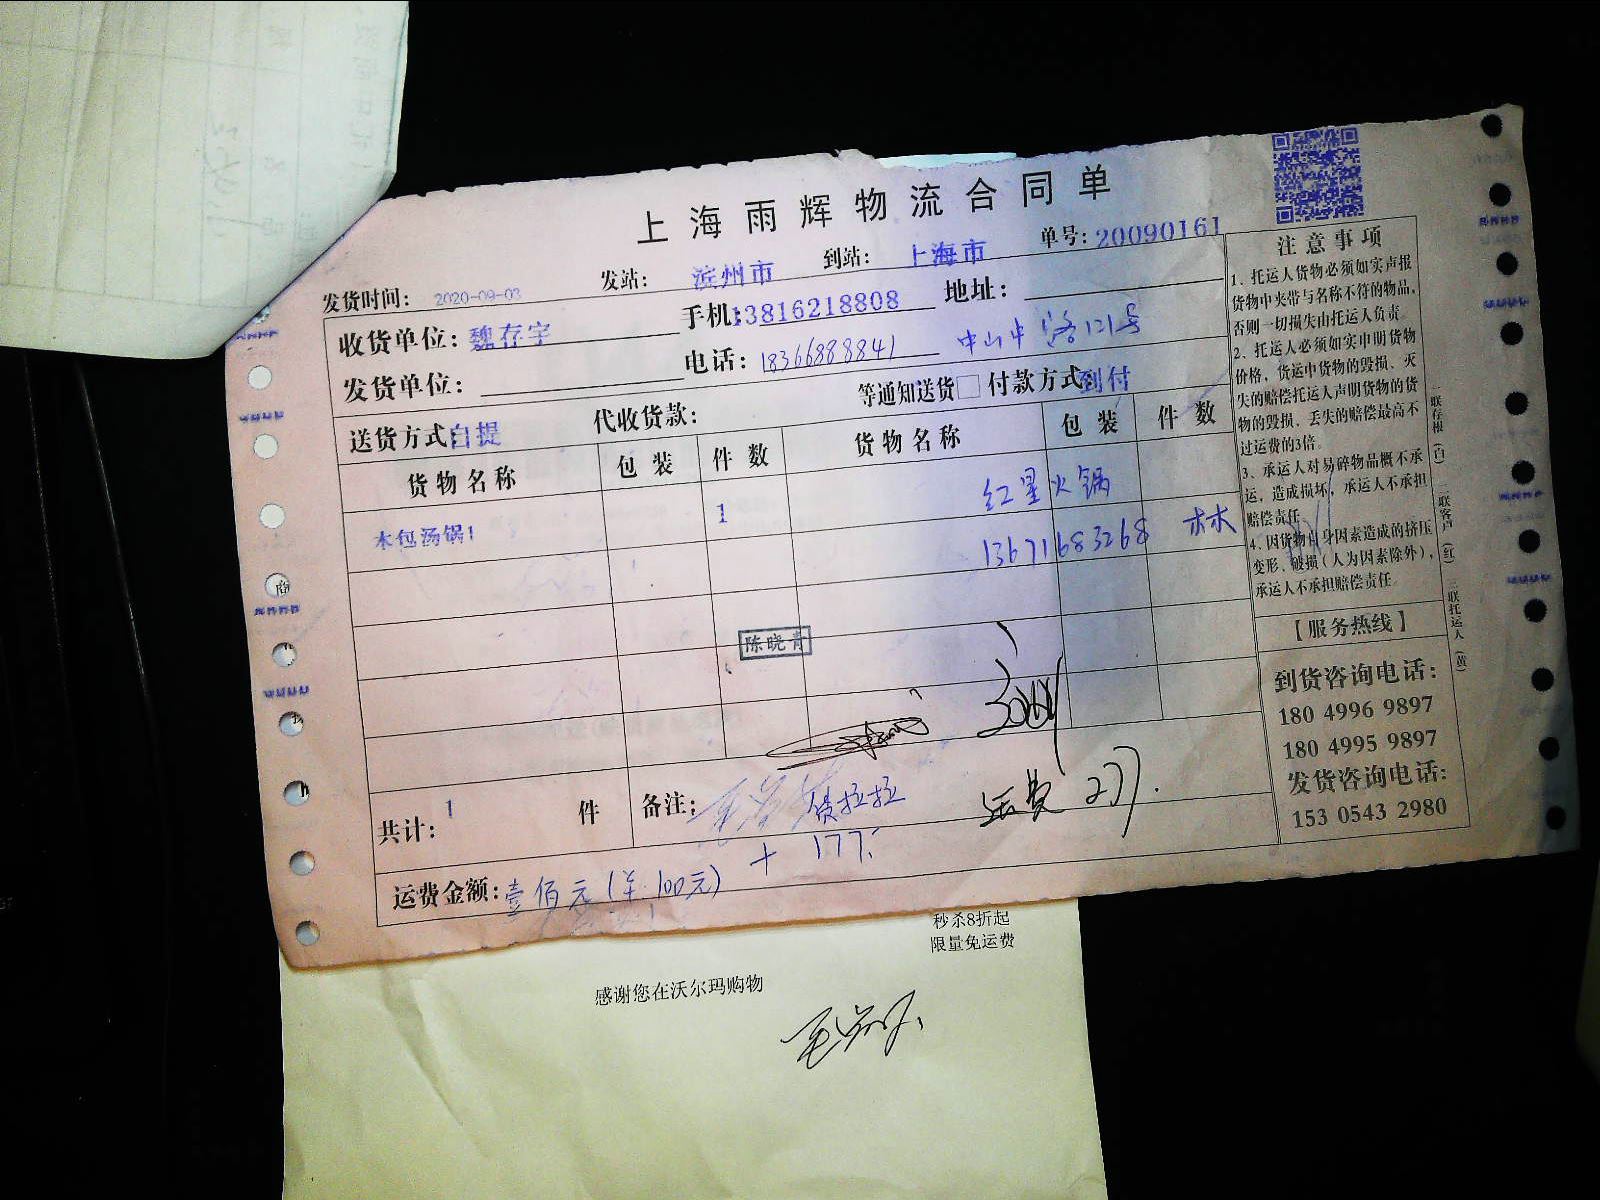 上海雨辉物流合同单
发货时间: 2020-09-03 发站: 滨州市 到站: 上海市 单号: 20090161
收货单位: 魏存宇 手机: 13816218808 地址:
发货单位: 电话: 18366888841 中山中路121号
送货方式 自提 代收货款: 等通知送货□ 付款方式 到付
货物名称 包装 件数 货物名称 包装 件数
木包汤锅1 1 红星火锅
13671683268 林
陈晓青
共计: 1 件 备注: 货拉拉 运费 277.
+ 177.
运费金额: 壹佰元(￥100元)
注意事项
1、托运人货物必须如实声报
货物中夹带与名称不符的物品,
否则一切损失由托运人负责
2、托运人必须如实申明货物
价格，货运中货物的毁损、灭
失的赔偿托运人声明货物的货
物的毁损、丢失的赔偿最高不
过运费的3倍。
3、承运人对易碎物品概不承
运，造成损坏，承运人不承担
赔偿责任
4、因货物自身因素造成的挤压
变形、破损（人为因素除外），
承运人不承担赔偿责任。
【服务热线】
到货咨询电话:
180 4996 9897
180 4995 9897
发货咨询电话:
153 0543 2980
一联存根(白) 二联客户(红) 三联托运人(黄)
秒杀8折起
限量免运费
感谢您在沃尔玛购物